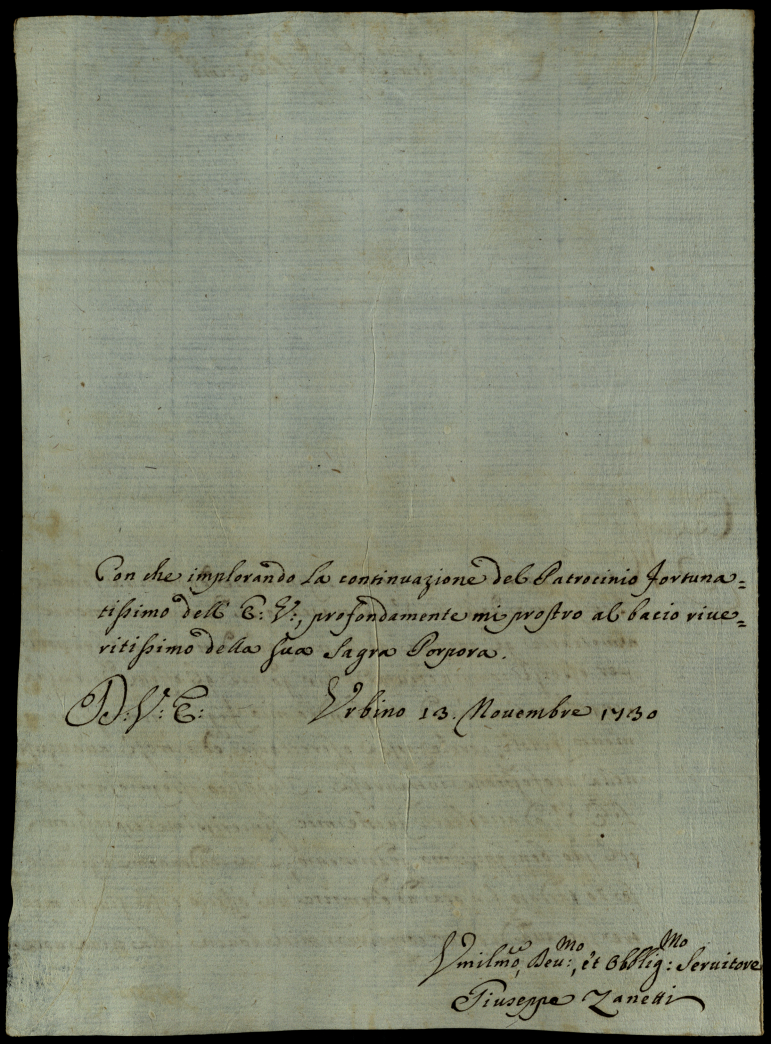 Con che implorando la continuazione del Patrocinio fortuna=
tissimo dell' E: V:, profondamente mi prostro al bacio rive=
ritissimo della sua Sagra Porpora.
D: V: E: Urbino 13. Novembre 1730
Umilmo, Deu:mo, et Obblig:mo Seruitore
Giuseppe Zanetti